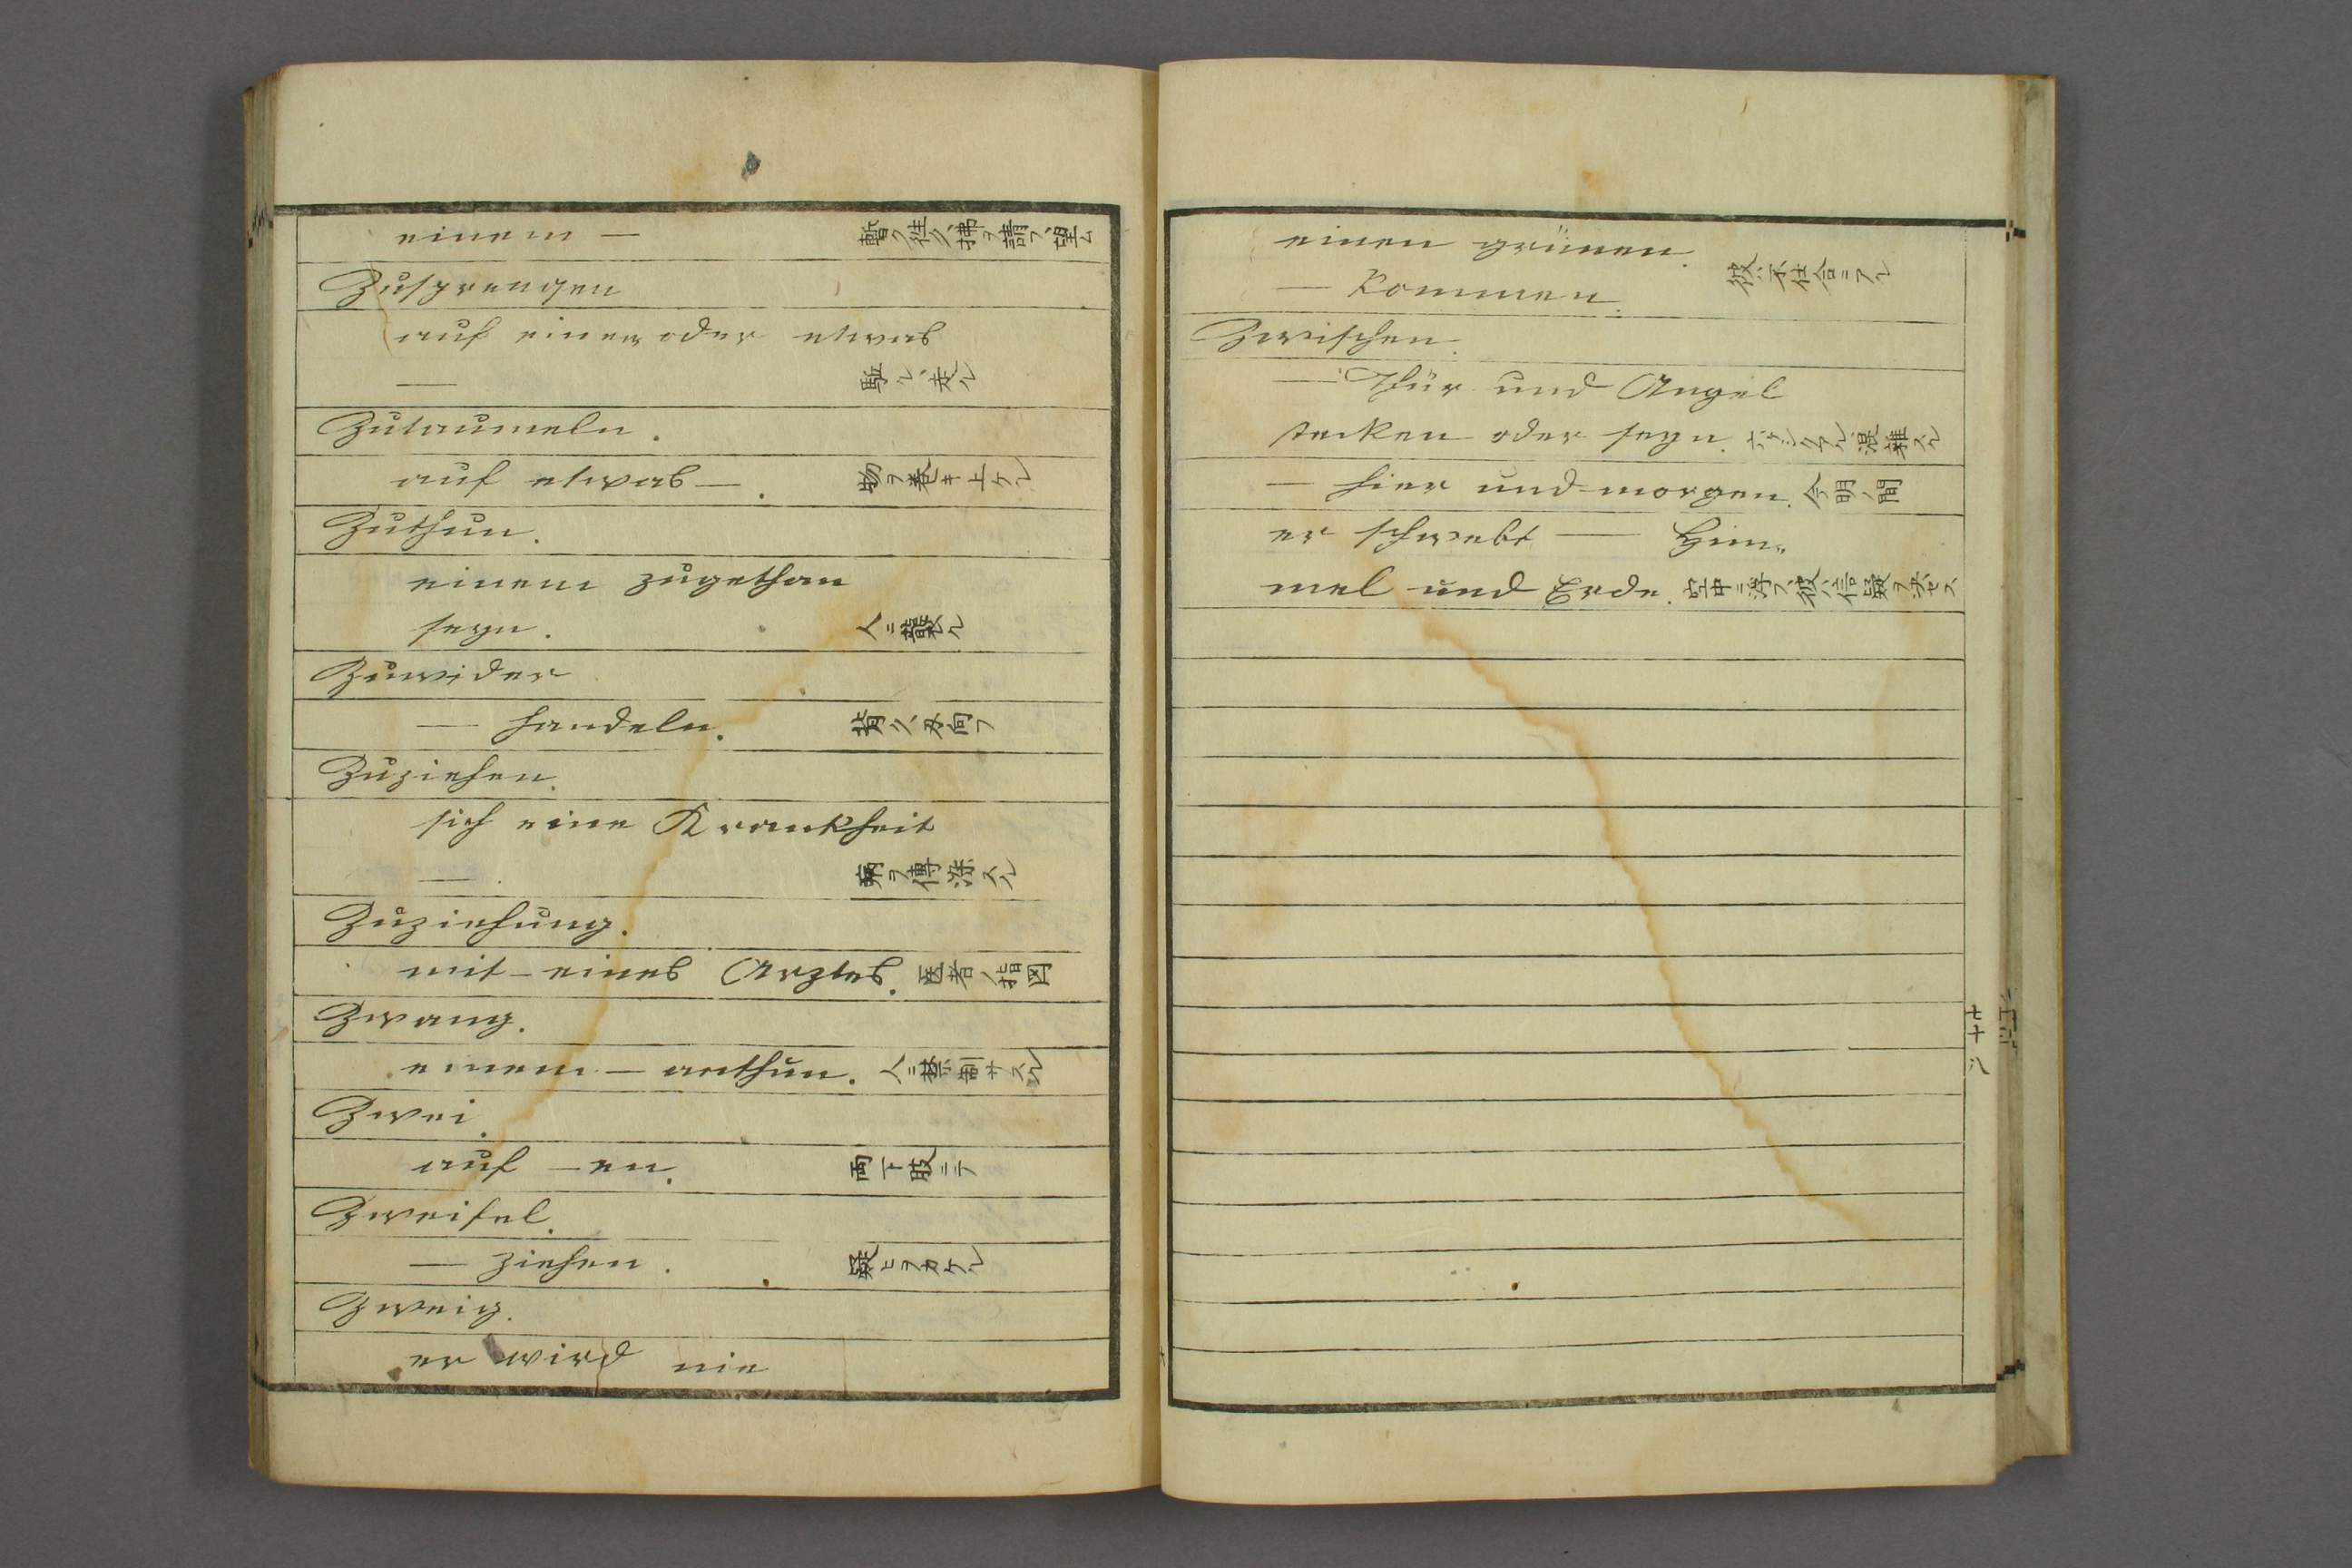 einem —
暫ク往ク、拂ヲ請フ、望ム
Zusprengen
auf einen oder etwas
— 駈ル、走ル
Zutaumeln.
auf etwas —. 物ヲ巻キ上ケル
Zuthun.
einem zugethan
seyn. 人ニ襲ル
Zuwider
— handeln. 背ク、刃向フ
Zuziehen.
sich eine Krankheit
—. 病ヲ傳染スル
Zuziehung.
mit — eines Arztes. 医者ノ指図
Zwang.
einem — anthun. 人ニ禁制サスル
Zwei.
auf —en. 両下股ニテ
Zweifel.
— ziehen. 疑ヒヲカケル
Zweig.
er wird nie
einen grünen.
— kommen. 彼ハ不仕合ニアル
Zwischen.
— Thür und Angel
stecken oder seyn. 混雑スル
— hier und morgen. 今明ノ間
er schwebt — Him„
mel und Erde. 空中ニ浮フ、彼ハ信疑ヲ决セス
七十八